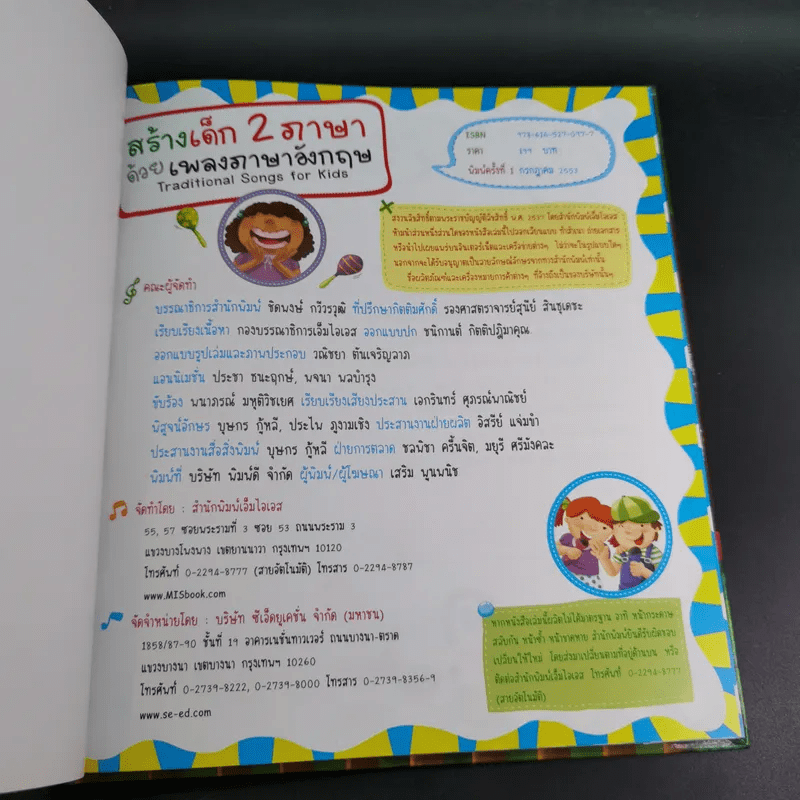 สร้างเด็ก 2 ภาษา
ด้วยเพลงภาษาอังกฤษ
Traditional Songs for Kids
ISBN 978-616-527-097-7
ราคา 199 บาท
พิมพ์ครั้งที่ 1 กรกฎาคม 2553
สงวนลิขสิทธิ์ตามพระราชบัญญัติลิขสิทธิ์ พ.ศ. 2537 โดยสำนักพิมพ์เอ็มไอเอส
ห้ามนำส่วนหนึ่งส่วนใดของหนังสือเล่มนี้ไปลอกเลียนแบบ ทำสำเนา ถ่ายเอกสาร
หรือนำไปเผยแพร่บนอินเตอร์เน็ตและเครือข่ายต่างๆ ไม่ว่าจะในรูปแบบใดๆ
นอกจากจะได้รับอนุญาตเป็นลายลักษณ์อักษรจากทางสำนักพิมพ์เท่านั้น
ชื่อผลิตภัณฑ์และเครื่องหมายการค้าต่างๆ ที่อ้างถึงเป็นของบริษัทนั้นๆ
คณะผู้จัดทำ
บรรณาธิการสำนักพิมพ์ ชิดพงษ์ กวีวรวุฒิ ที่ปรึกษากิตติมศักดิ์ รองศาสตราจารย์สุนีย์ สินธุเดชะ
เรียบเรียงเนื้อหา กองบรรณาธิการเอ็มไอเอส ออกแบบปก ชนิกานต์ กิตติปฎิมาคุณ
ออกแบบรูปเล่มและภาพประกอบ วณิชยา ตันเจริญลาภ
แอนนิเมชั่น ประชา ธนะฤกษ์, พจนา พลบำรุง
ขับร้อง พนาภรณ์ มหุติวิชเยศ เรียบเรียงเสียงประสาน เอกรินทร์ ศุภรณ์พาณิชย์
พิสูจน์อักษร บุษกร กู้หลี, ประไพ ภูงามเชิง ประสานงานฝ่ายผลิต อิสรีย์ แจ่มขำ
ประสานงานสื่อสิ่งพิมพ์ บุษกร กู้หลี ฝ่ายการตลาด ชลพิชา ครึ้นจิต, มยุรี ศรีมังคละ
พิมพ์ที่ บริษัท พิมพ์ดี จำกัด ผู้พิมพ์/ผู้โฆษณา เสริม พูนพนิช
จัดทำโดย : สำนักพิมพ์เอ็มไอเอส
55, 57 ซอยพระรามที่ 3 ซอย 53 ถนนพระราม 3
แขวงบางโพงพาง เขตยานนาวา กรุงเทพฯ 10120
โทรศัพท์ 0-2294-8777 (สายอัตโนมัติ) โทรสาร 0-2294-8787
www.MISbook.com
จัดจำหน่ายโดย : บริษัท ซีเอ็ดยูเคชั่น จำกัด (มหาชน)
1858/87-90 ชั้นที่ 19 อาคารเนชั่นทาวเวอร์ ถนนบางนา-ตราด
แขวงบางนา เขตบางนา กรุงเทพฯ 10260
โทรศัพท์ 0-2739-8222, 0-2739-8000 โทรสาร 0-2739-8356-9
www.se-ed.com
หากหนังสือเล่มนี้ผลิตไม่ได้มาตรฐาน อาทิ หน้ากระดาษ
สลับกัน หน้าซ้ำ หน้าขาดหาย สำนักพิมพ์ยินดีรับผิดชอบ
เปลี่ยนให้ใหม่ โดยส่งมาเปลี่ยนตามที่อยู่ด้านบน หรือ
ติดต่อสำนักพิมพ์เอ็มไอเอส โทรศัพท์ 0-2294-8777
(สายอัตโนมัติ)